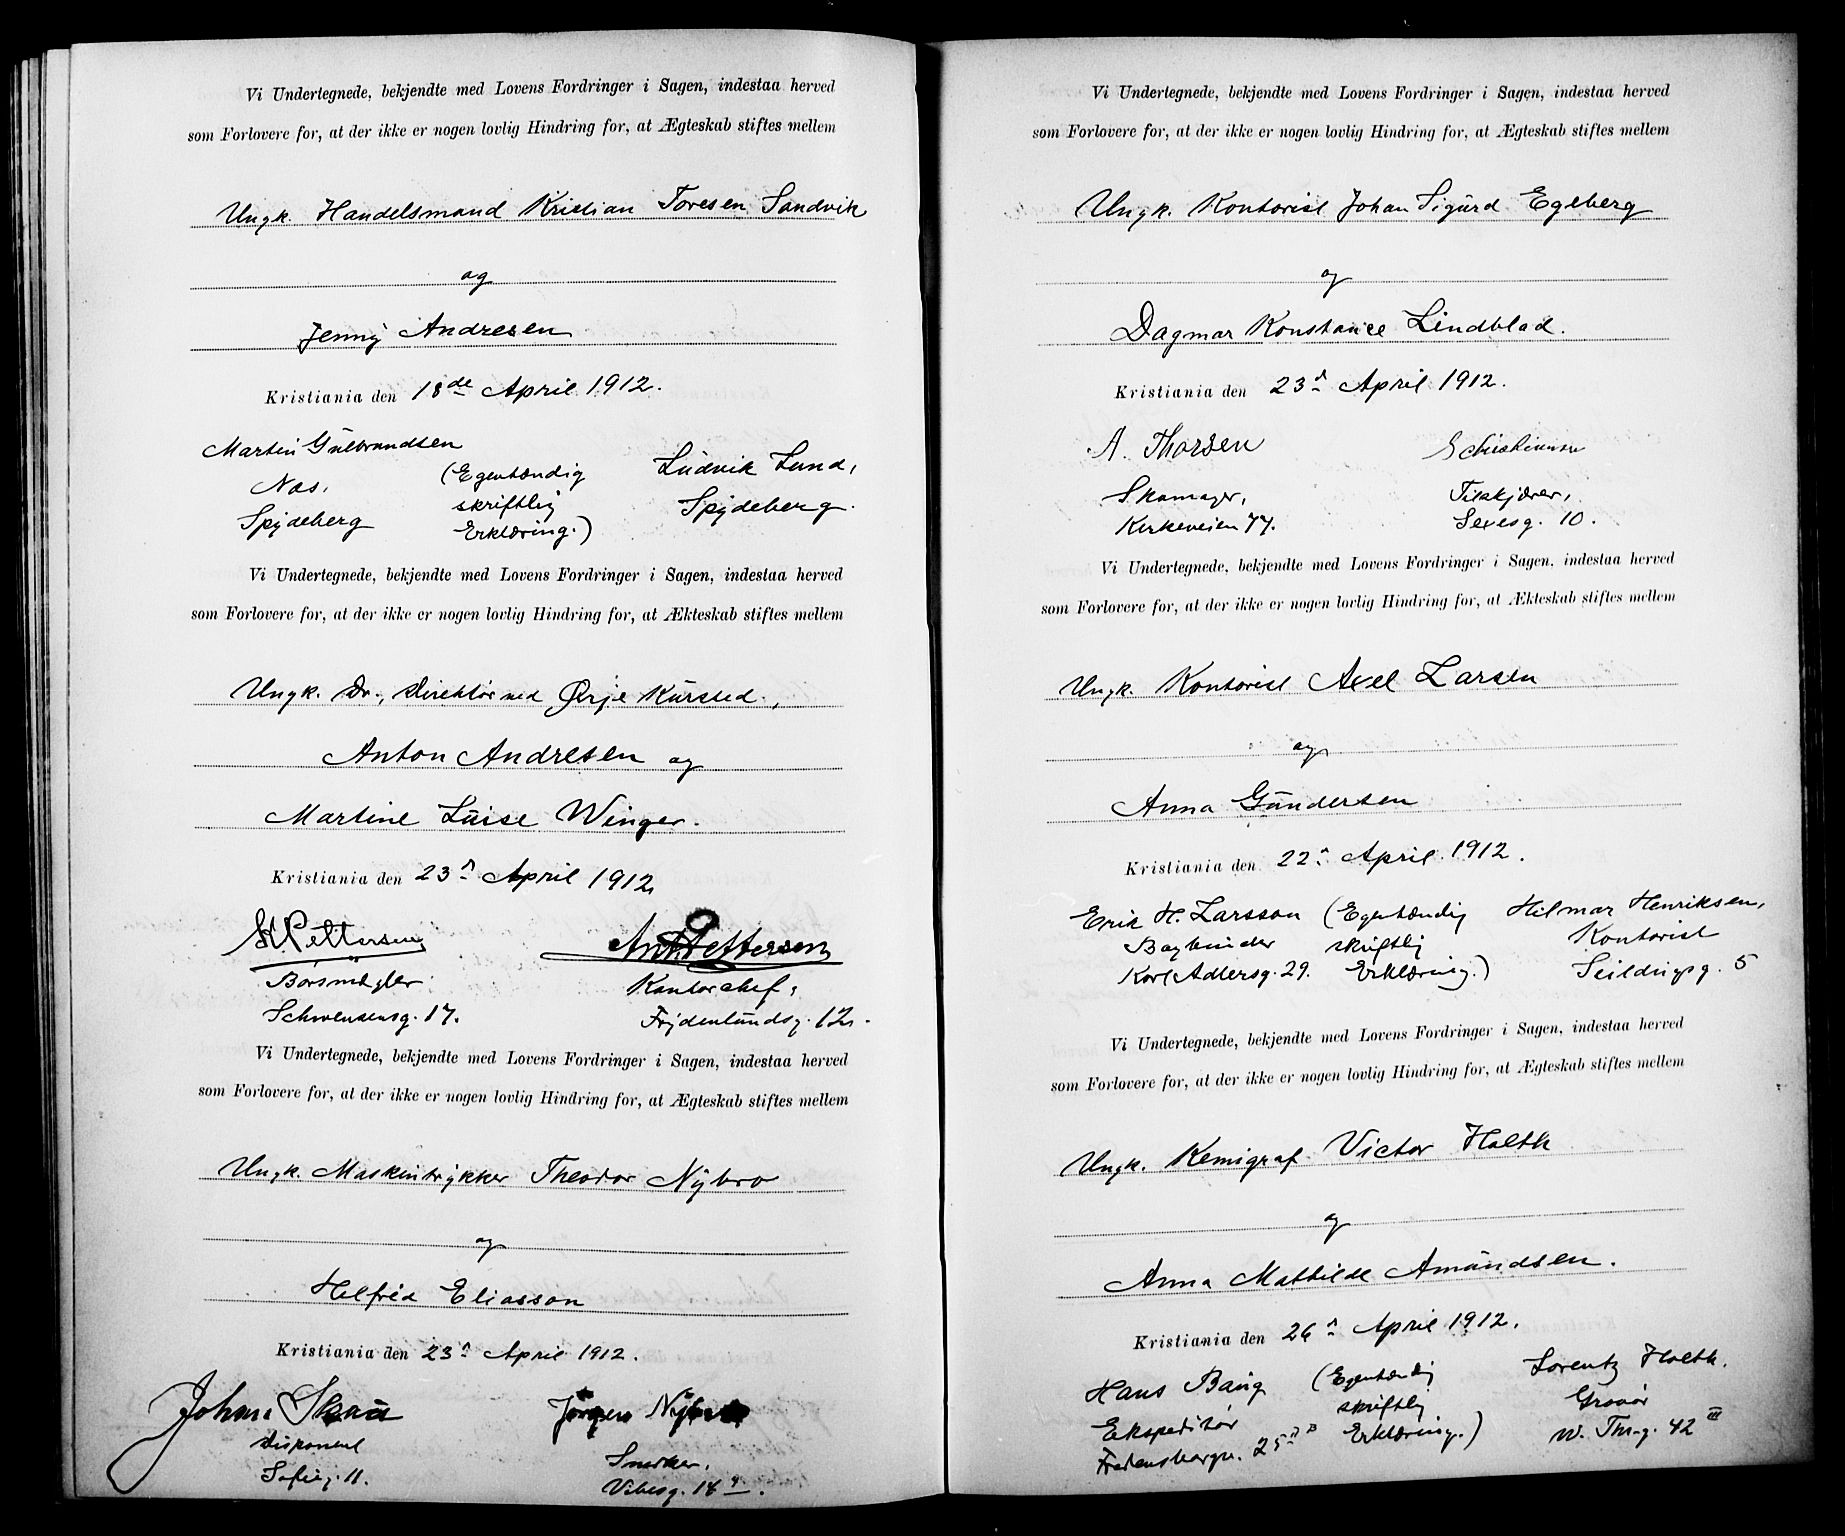 Vi Undertegnede, bekjendte med Lovens Fordringer i Sagen, indestaa herved
som Forlovere for, at der ikke er nogen lovlig Hindring for, at Ægteskab stiftes mellem
Ungk. Handelsmand Kristian Toresen Sandvik
og
Jenny Andresen
Kristiania den 18de April 1912.
Martin Gulbrandsen
Nas,
Spydeberg
(Egenhændig
skriftlig
Erklæring.)
Ludvik Lund,
Spydeberg.
Vi Undertegnede, bekjendte med Lovens Fordringer i Sagen, indestaa herved
som Forlovere for, at der ikke er nogen lovlig Hindring for, at Ækteskab stiftes mellem
Ungk. Dr., Direktør ved Ørje Kursted,
Anton Andresen og
Martine Luise Winger.
Kristiania den 23d April 1912
Pettersen
Børsmægler
Schwensensg. 17.
Ant. Pettersen
Kontorchef,
Frydenlundsg. 12.
Vi Undertegnede, bekjendte med Lovens Fordringer i Sagen, indestaa herved
som Forlovere for, at der ikke er nogen lovlig Hindring for, at Ægteskab stiftes mellem
Ungk. Maskintrykker Theodor Nybro
og
Helfrid Eliasson
Kristiania den 23d April 1912.
Johan Skau
Disponent
Sofieg. 11.
Jørgen Nybro
Snekker.
Vibesg. 18
Vi Undertegnede, bekjendte med Lovens Fordringer i Sagen, indestaa herved
som Forlovere for, at der ikke er nogen lovlig Hindring for, at Ægteskab stiftes mellem
Ungk. Kontorist Johan Sigurd Egeberg
og
Dagmar Konstance Lindblad.
Kristiania den 23d April 1912.
A. Thorsen
Skomager,
Kirkeveien 77.
Christiansen
Tilskjærer,
Sexesg. 10.
Vi Undertegnede, bekjendte med Lovens Fordringer i Sagen, indestaa herved
som Forlovere for, at der ikke er nogen lovlig Hindring for, at Ækteskab stiftes mellem
Ungk. Kontorist Axel Larsen
og
Anna Gundersen
Kristiania den 22d April 1912.
Erik H. Larsson
Bogbinder
Karl Adlersg. 29.
(Egenhændig
skriftlig
Erklæring.)
Hilmar Henriksen,
Kontorist
Seildugsg. 5
Vi Undertegnede, bekjendte med Lovens Fordringer i Sagen, indestaa herved
som Forlovere for, at der ikke er nogen lovlig Hindring for, at Ægteskab stiftes mellem
Ungk. Kemigraf Victor Holth
og
Anna Mathilde Amundsen.
Kristiania den 26d April 1912.
Hans Bang
Ekspeditør
Fredensborgv. 25
(Egenhændig
skriftlig
Erklæring.)
Lorentz Holth.
Gravør
W. Thr-g. 42 III